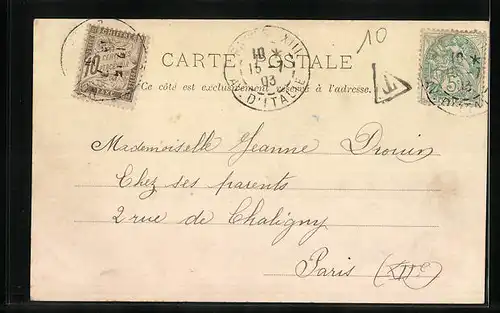 10
CARTE POSTALE
Ce côté est exclusivement réservé à l'adresse.
T
10
15
03
AV. D'ITALIE
5
Mademoiselle Jeanne Drouin
Chez ses parents
2 rue de Chaligny
Paris (XIIe)